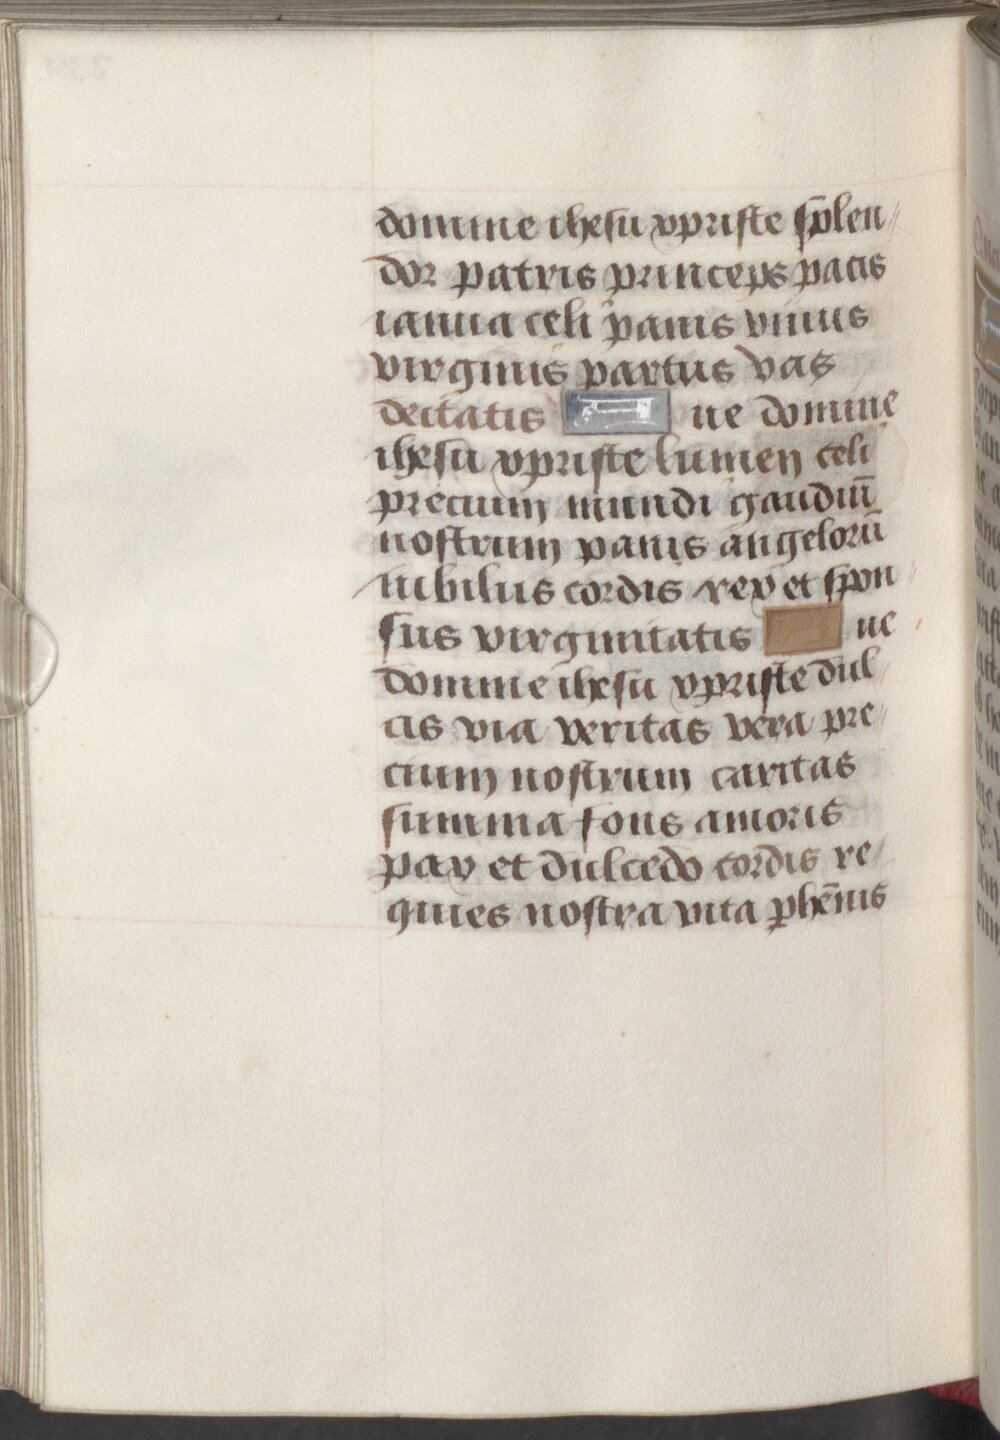 domine ihesu xpriste splen
dor patris princeps pacis
ianua celi panis vivus
virginis partus vas
deitatis ue domine
ihesu xpriste lumen celi
precium mundi gaudiū
nostrum panis angelorū
iubilus cordis rex et spon
sus virginitatis ue
domine ihesu xpriste dul
cis via veritas vera pre
cium nostrum caritas
summa fons amoris
pax et dulcedo cordis re
quies nostra vita phēnis